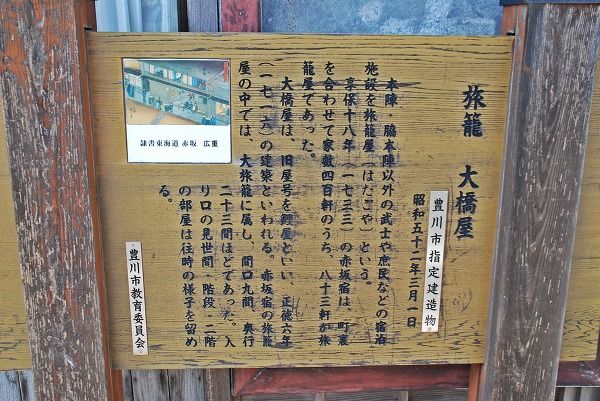 旅籠　大橋屋
豊川市指定建造物
昭和五十二年三月一日
本陣・脇本陣以外の武士や庶民などの宿泊
施設を旅籠屋（はたごや）という。
享保十八年（一七三三）の赤坂宿は、町裏
を合わせて家数四百軒のうち、八十三軒が旅
籠屋であった。
大橋屋は、旧屋号を鯉屋といい、正徳六年
（一七一六）の建築といわれる。赤坂宿の旅籠
屋の中では、大旅籠に属し、間口九間、奥行
二十三間ほどであった。入
り口の見世間・階段・二階
の部屋は往時の様子を留め
る。
隷書東海道 赤坂 広重
豊川市教育委員会